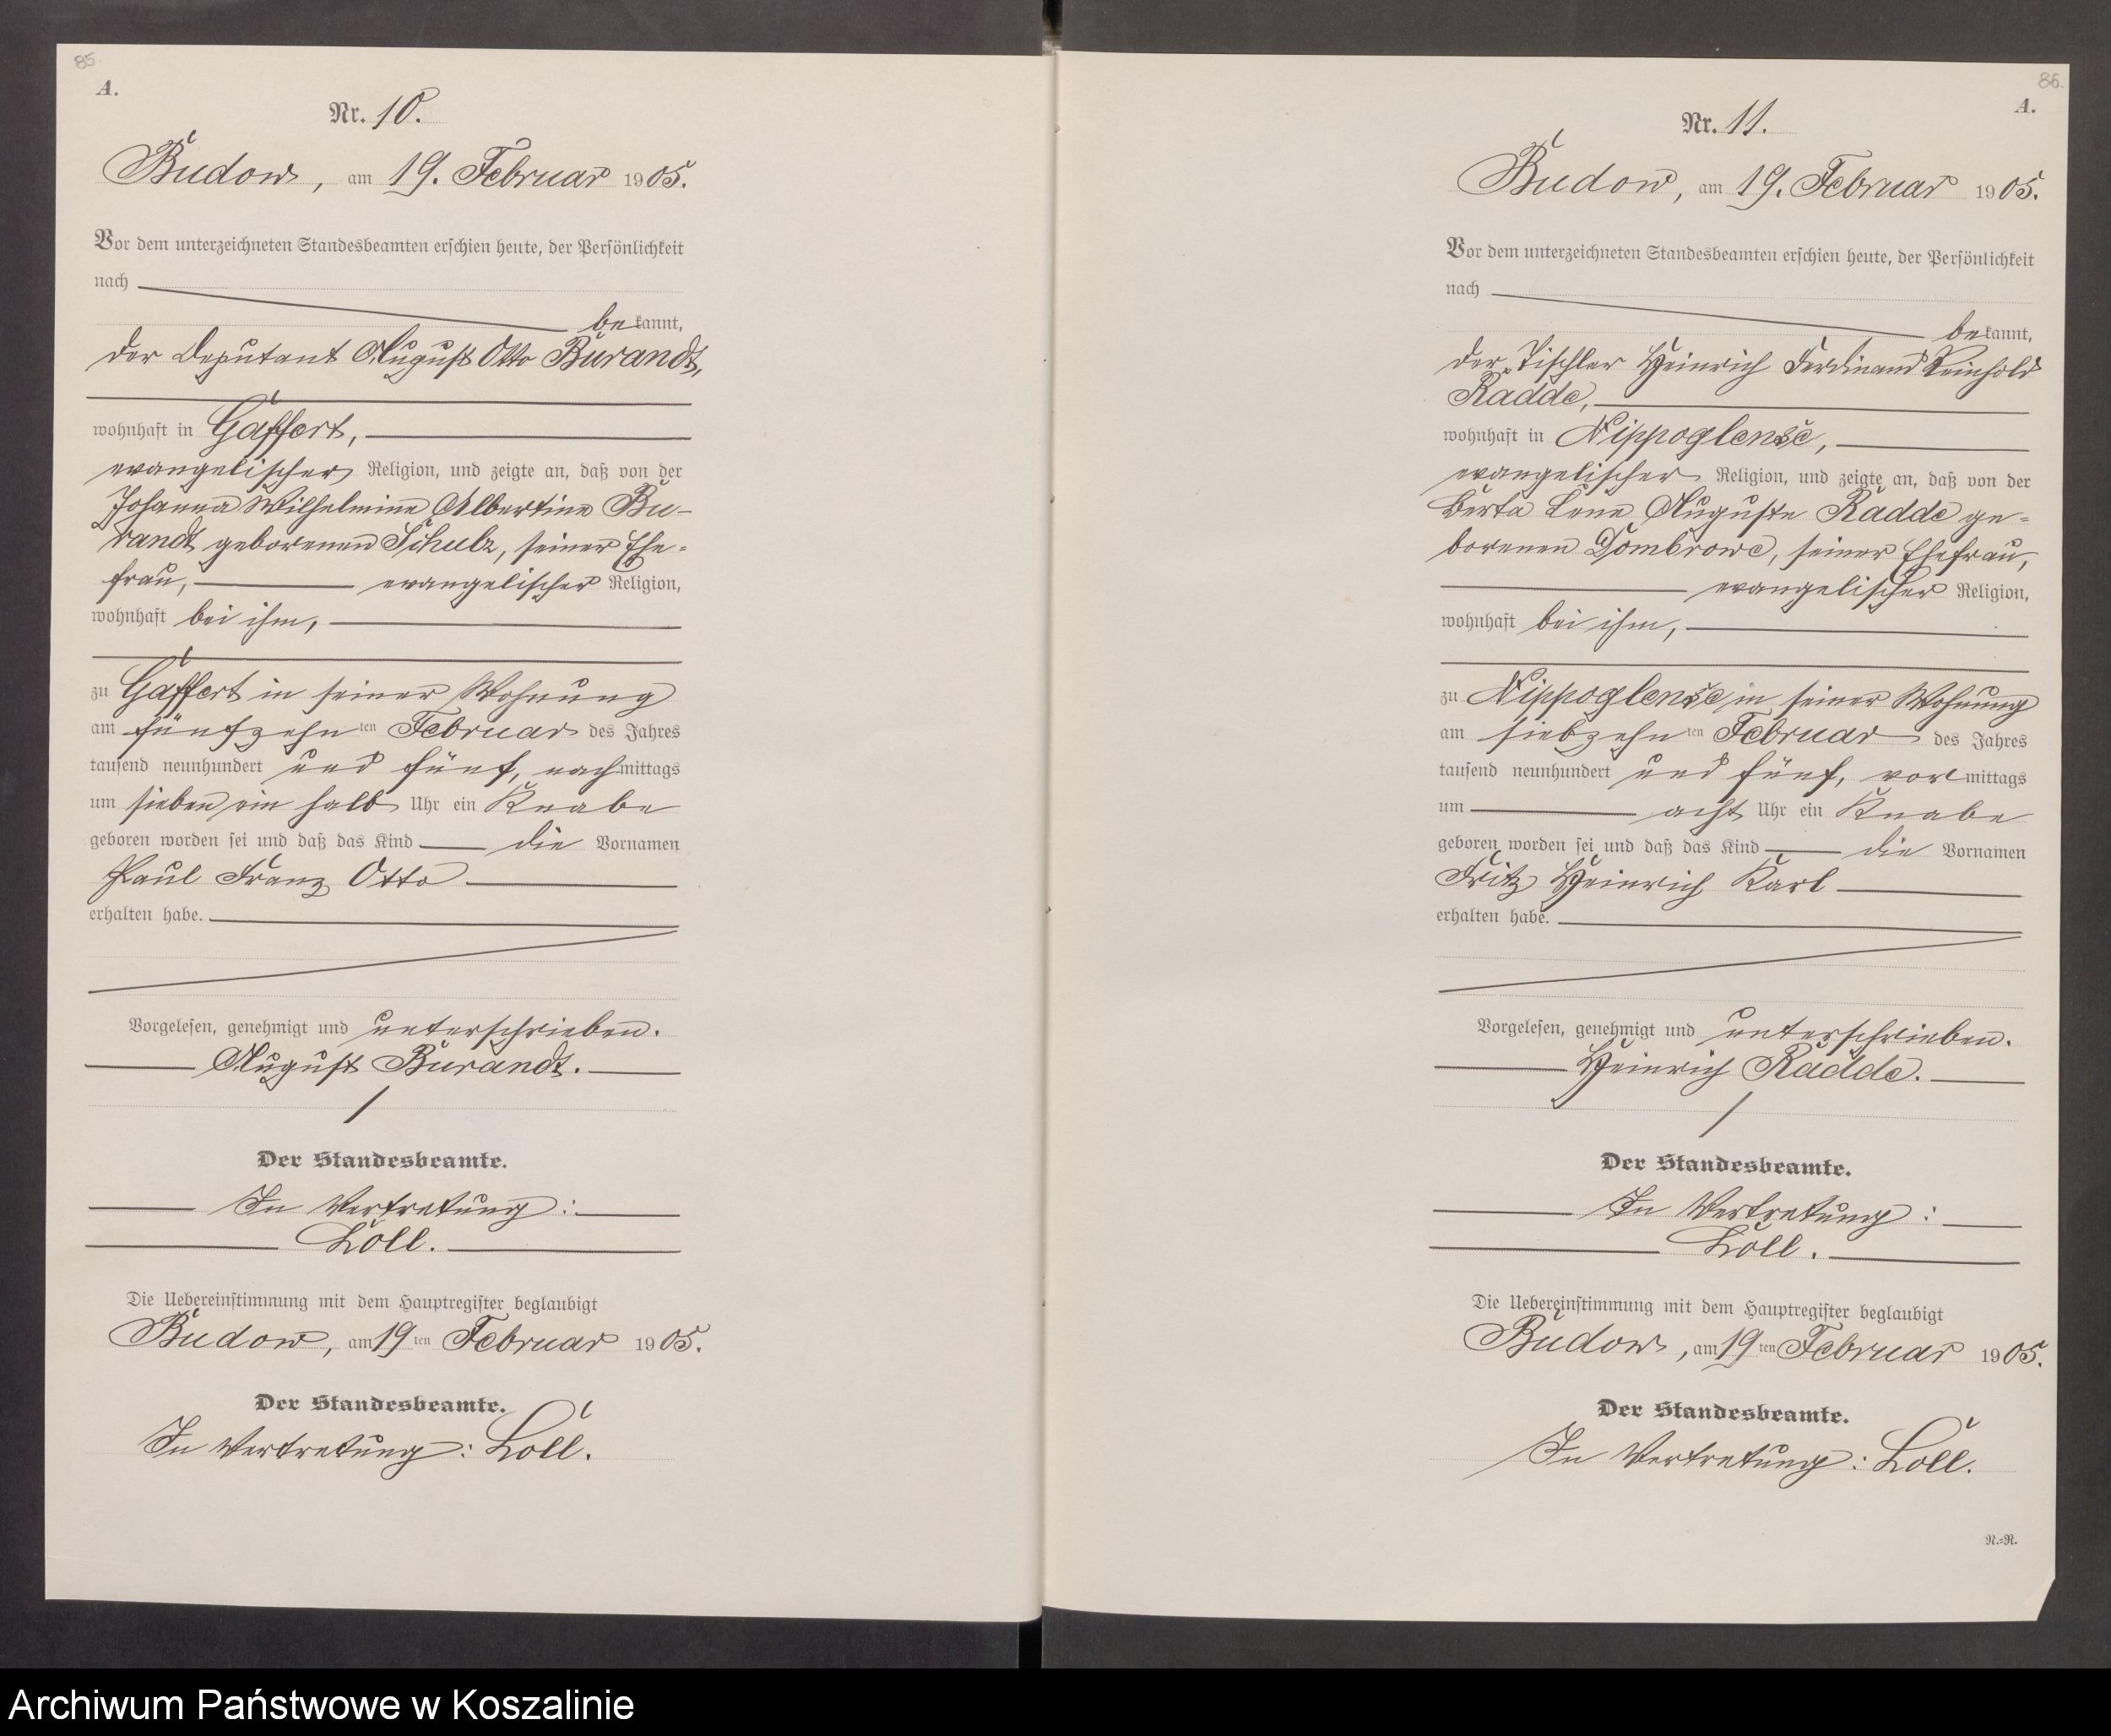 85.
A.
Nr. 10.
Budow, am 19. Februar 1905.
Vor dem unterzeichneten Standesbeamten erschien heute, der Persönlichkeit
nach
bekannt,
der Deputant August Otto Burandt,
wohnhaft in Gaffert,
evangelischer Religion, und zeigte an, daß von der
Johanna Wilhelmine Albertine Bu-
randt geborenen Schulz, seiner Ehe-
frau, evangelischer Religion,
wohnhaft bei ihm,
zu Gaffert in seiner Wohnung
am fünfzehnten Februar des Jahres
tausend neunhundert und fünf, nachmittags
um sieben ein halb Uhr ein Knabe
geboren worden sei und daß das Kind die Vornamen
Paul Franz Otto
erhalten habe.
Vorgelesen, genehmigt und unterschrieben.
August Burandt.
Der Standesbeamte.
In Vertretung:
Loll.
Die Uebereinstimmung mit dem Hauptregister beglaubigt
Budow, am 19ten Februar 1905.
Der Standesbeamte.
In Vertretung: Loll.
86.
A.
Nr. 11.
Budow, am 19. Februar 1905.
Vor dem unterzeichneten Standesbeamten erschien heute, der Persönlichkeit
nach
bekannt,
der Tischler Heinrich Ferdinand Reinhold
Radde,
wohnhaft in Nippoglense,
evangelischer Religion, und zeigte an, daß von der
Berta Lene Auguste Radde ge-
borenen Dombrowe, seiner Ehefrau,
evangelischer Religion,
wohnhaft bei ihm,
zu Nippoglense in seiner Wohnung
am siebzehnten Februar des Jahres
tausend neunhundert und fünf, vormittags
um acht Uhr ein Knabe
geboren worden sei und daß das Kind die Vornamen
Fritz Heinrich Karl
erhalten habe.
Vorgelesen, genehmigt und unterschrieben.
Heinrich Radde.
Der Standesbeamte.
In Vertretung:
Loll.
Die Uebereinstimmung mit dem Hauptregister beglaubigt
Budow, am 19ten Februar 1905.
Der Standesbeamte.
In Vertretung: Loll.
N.=N.
Archiwum Państwowe w Koszalinie